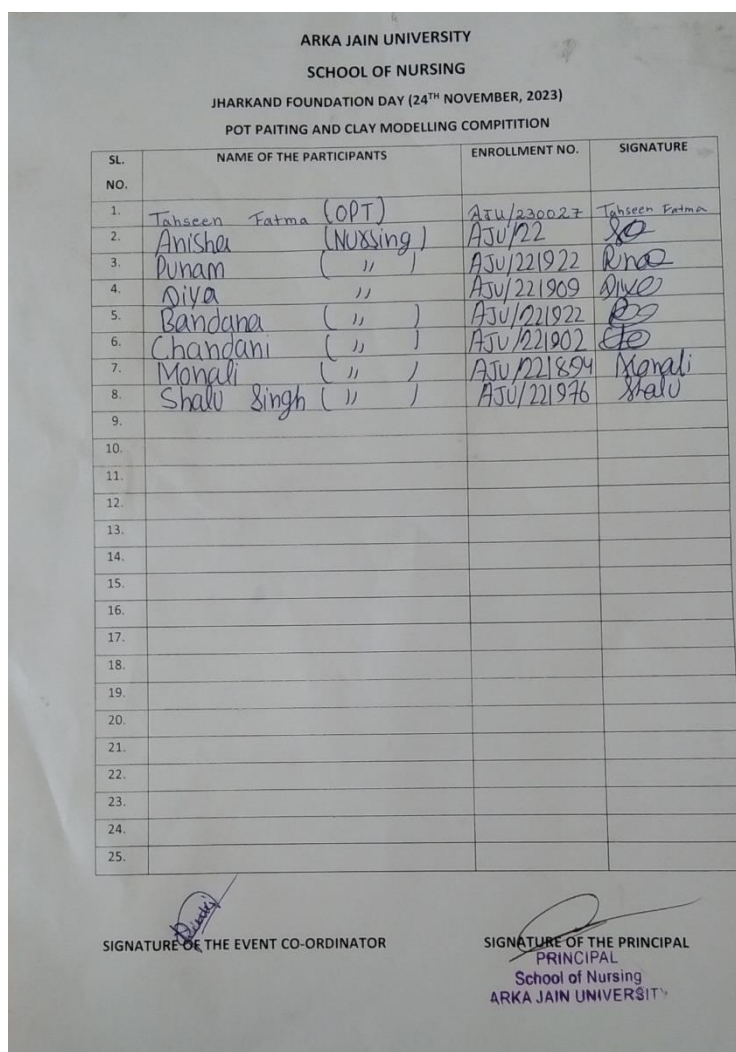 ARKA JAIN UNIVERSITY
SCHOOL OF NURSING
JHARKAND FOUNDATION DAY (24TH NOVEMBER, 2023)
POT PAITING AND CLAY MODELLING COMPITITION
SL. NO. NAME OF THE PARTICIPANTS ENROLLMENT NO. SIGNATURE
1. Tahseen Fatma (OPT) AJU/230027 Tahseen Fatma
2. Anisha (Nursing) AJU/22
3. Punam ( " ) AJU/221922
4. Diya " AJU/221909 Diya
5. Bandana ( " ) AJU/221922
6. Chandani ( " ) AJU/221902
7. Monali ( " ) AJU/221894 Monali
8. Shalu Singh ( " ) AJU/221976 Shalu
9.
10.
11.
12.
13.
14.
15.
16.
17.
18.
19.
20.
21.
22.
23.
24.
25.
SIGNATURE OF THE EVENT CO-ORDINATOR SIGNATURE OF THE PRINCIPAL
PRINCIPAL
School of Nursing
ARKA JAIN UNIVERSITY